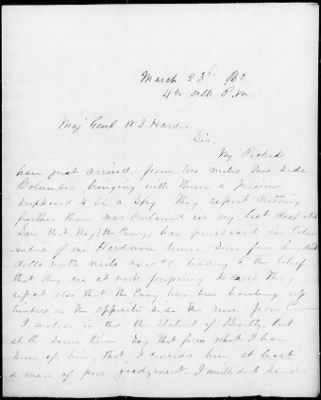 March 23d /62
4 oclk P.M
Maj Genl W J Hardee
Sir
My Pickets
have just arrived from two miles this side
Columbia bringing with them a prisoner
supposed to be a Spy. They report nothing
further than was contained in my last dispatch
save that they (the Enemy) have purchased in Colum
-bia of one Hardware house, some four hundred
dolls worth nails axes &c leading to the belief
that they are at work preparing to cross. They
report also that the Enemy have been hunting up
timbers on the opposite side the river from
I enclose in this the statement of but
at the same time say that from what I have
seen of him, that, I consider him at least
a man of poor judgment. I